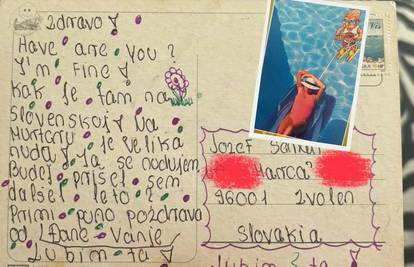 Zdravo!
Have are you?
I'm fine!
Kak je tam na
Slovenskoj? Na
Murteru je velika
nuda! Ja se nudujem
budeš prišel sem
dalšel leta?
Primi puno pozdrava
od Dane Vanje
Ljubim ta!
Jozef
Harca
96001 Zvolen
Slovakia
Ljubim ta!